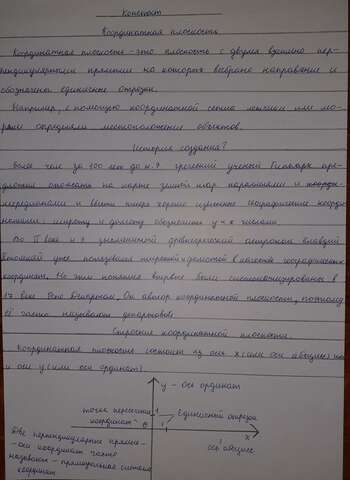 Конспект
Координатная плоскость.
Координатная плоскость - это плоскость с двумя взаимно пер-
пендикулярными прямыми на которых выбрано направление и
обозначены единичные отрезки.
Например, с помощью координатной сетки летчики или мо-
ряки определяют местоположение объектов.
История создания?
Более чем за 100 лет до н.э греческий ученый Гиппарх пред-
ложил опоясать на карте земной шар параллелями и
меридианами и ввести теперь хорошо известные географические коорди-
наты: широту и долготу обозначить их числами.
Во II веке н.э знаменитый древнегреческий астроном Клавдий
Птолемей уже пользовался широтой и долготой в качестве географических
координат. Но эти понятия впервые были систематизированы в
17 веке Рене Декартом. Он автор координатной плоскости, поэтому
её часто называют декартовой
Строение координатной плоскости.
Координатная плоскость состоит из оси x (или оси абсцисс)
и оси y (или оси ординат)
y - ось ординат
точка пересечения
координат
0
1
1
Единичный отрезок
x
ось абсцисс
Две перпендикулярные прямые -
- оси координат часто
называют - прямоугольная система
координат